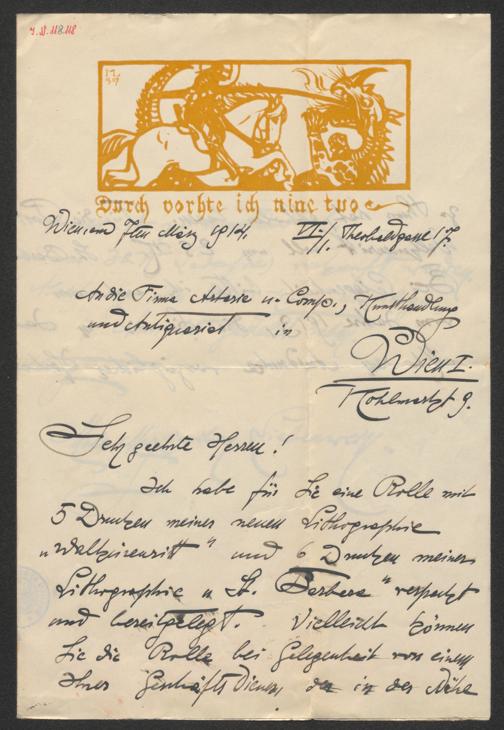 I.N. 118.118
Durch vorhte ich nine tuo
Wien, am 7ten März 1914.
VI./1. Theobaldgasse 17.
An die Firma Artaria u. Comp., Kunsthandlung
und Antiquariat in
Wien I.
Kohlmarkt 9.
Sehr geehrte Herren!
Ich habe für Sie eine Rolle mit
5 Drucken meiner neuen Lithographie
„ " und 6 Drucken meiner
Lithographie „St. Barbara" verpackt
und bereitgelegt. Vielleicht können
Sie die Rolle bei Gelegenheit von einem
Ihrer Geschäftsdiener, der in der Nähe